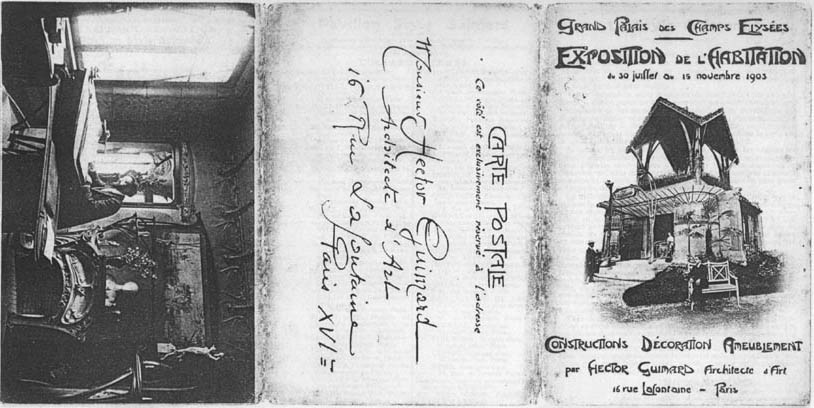 CARTE POSTALE
Ce côté est exclusivement réservé à l'adresse
Monsieur Hector Guimard
Architecte d'Art
16 Rue Lafontaine
Paris XVIe
GRAND PALAIS DES CHAMPS ELYSÉES
EXPOSITION DE L'HABITATION
du 30 juillet au 15 novembre 1903
CONSTRUCTIONS DÉCORATION AMEUBLEMENT
par HECTOR GUIMARD Architecte d'Art
16 rue Lafontaine - Paris